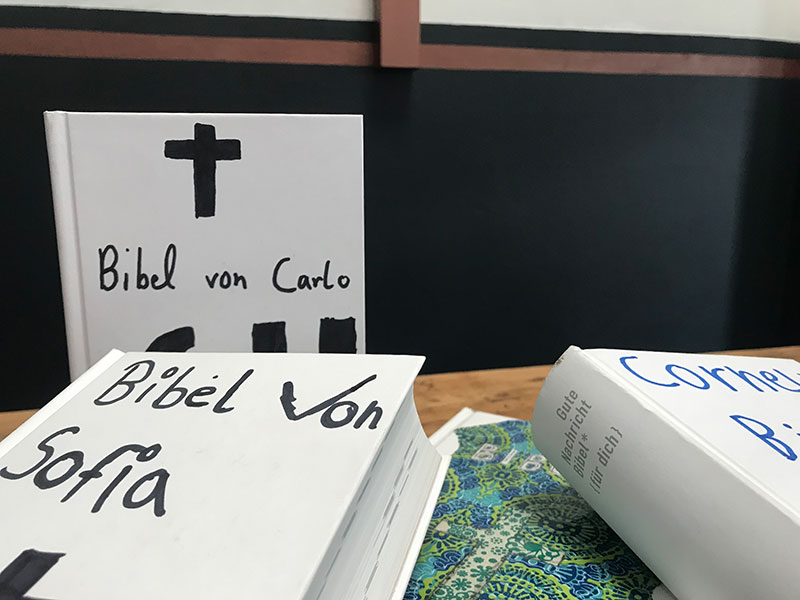 Bibel von Carlo
Bibel Von
Sofia
Gute
Nachricht
Bibel*
{für dich}